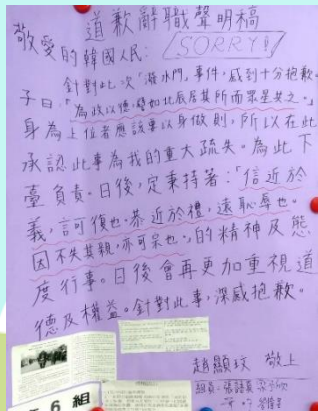 道歉辭職聲明稿
敬愛的韓國人民：
SORRY!
針對此次「滋水門」事件，感到十分抱歉。
子曰：「為政以德，譬如北辰居其所而眾星共之。」
身為上位者應該要以身做則，所以在此
承認此事為我的重大疏失。為此下
臺負責。日後，定秉持著：「信近於
義，言可復也。恭近於禮，遠恥辱也。
因不失其親，亦可宗也。」的精神及態
度行事。日後會再更加重視道
德及權益。針對此事，深感抱歉。
趙顯玟 敬上
6 組
組員：張語真